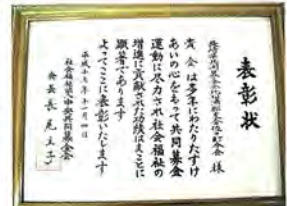 表彰状
様
貴会は多年にわたりたすけ
あいの心をもって共同募金
運動に尽力され社会福祉の
増進に貢献された功績はまことに
顕著であります
よってここに表彰いたします
平成十七年十一月四日
社会福祉法人中央共同募金会
会長 長尾立子